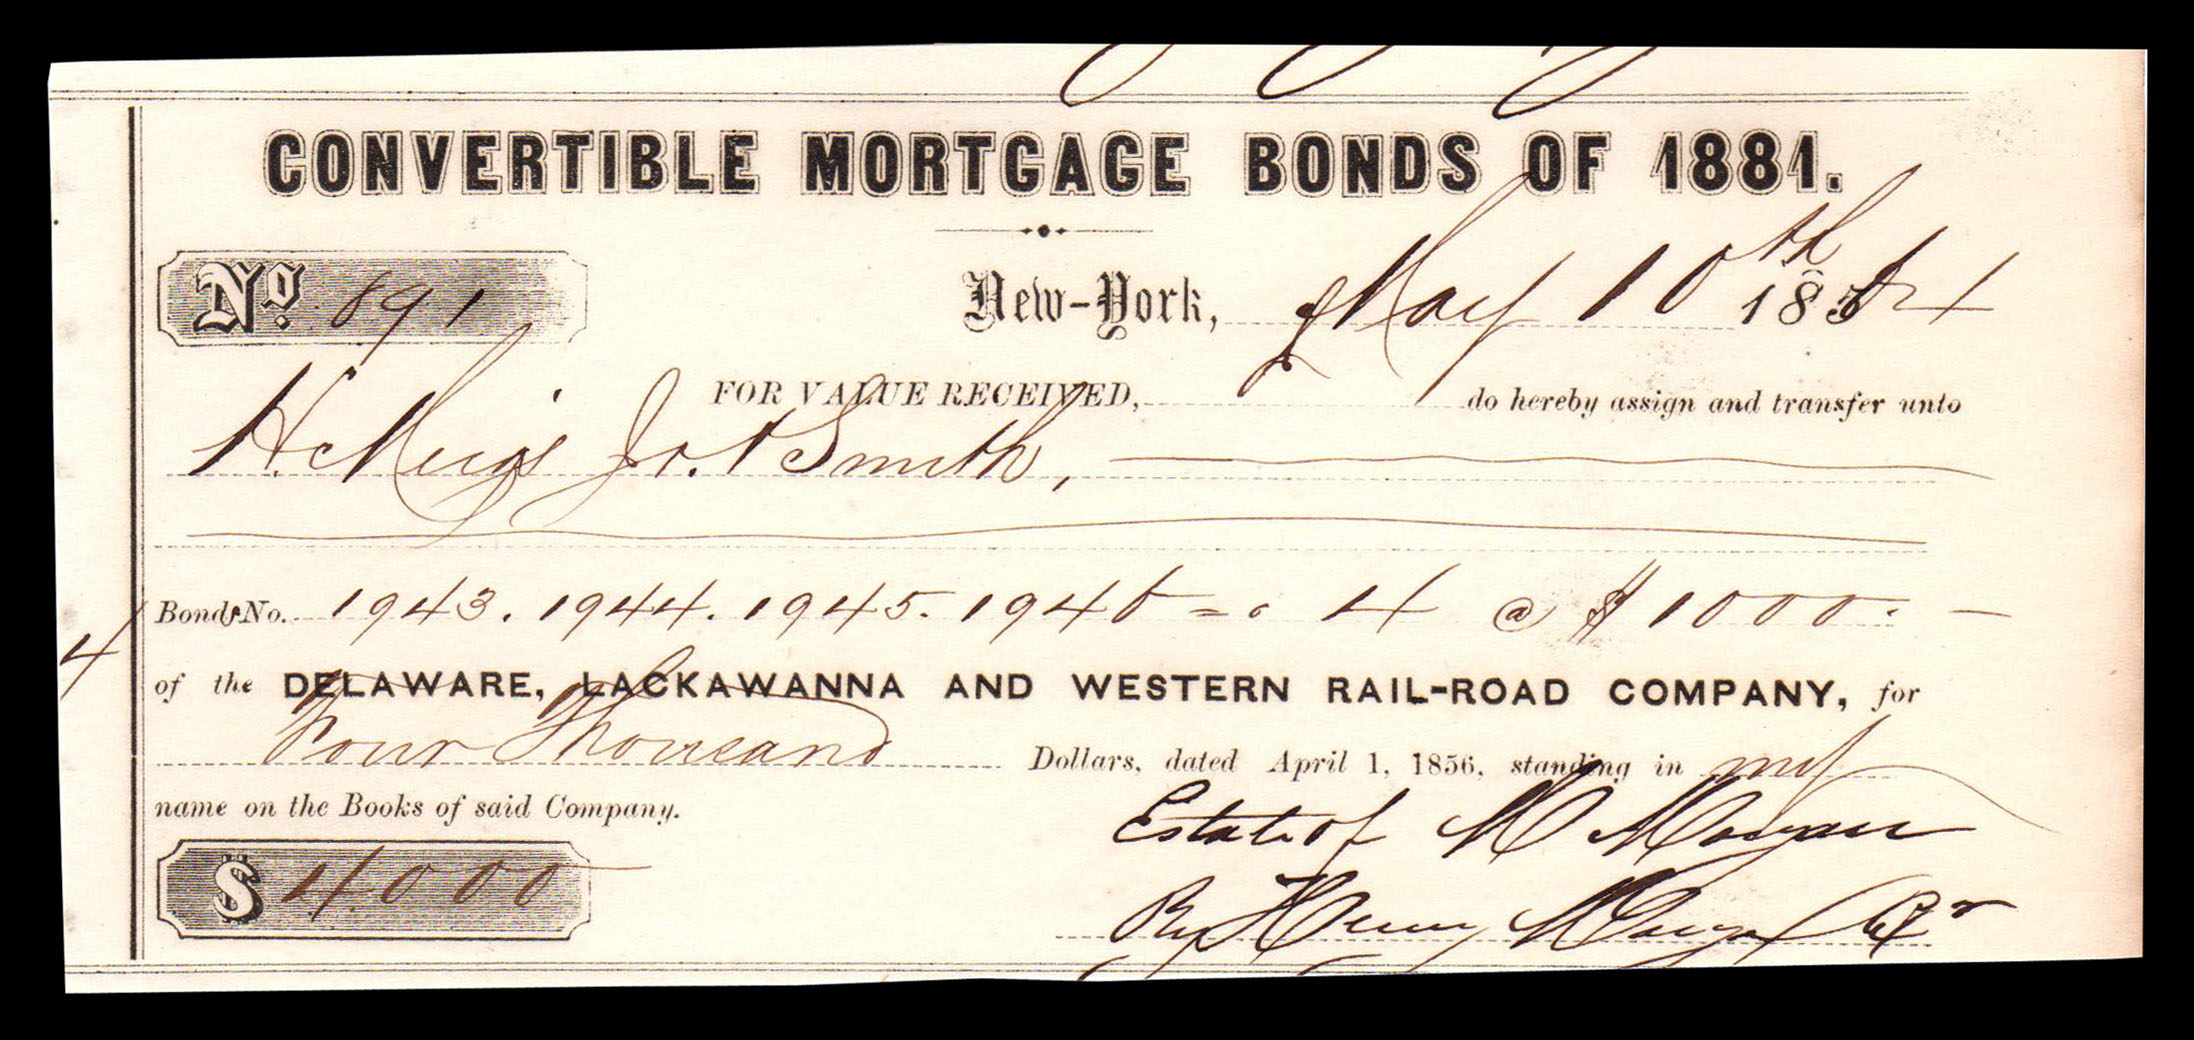 CONVERTIBLE MORTGAGE BONDS OF 1881.
No. 891
New-York, May 10th 1864
FOR VALUE RECEIVED, do hereby assign and transfer unto
H. Meigs Jr. & Smith,
Bonds No. 1943. 1944. 1945. 1946 = 4 @ $1000. —
4
of the DELAWARE, LACKAWANNA AND WESTERN RAIL-ROAD COMPANY, for
Four Thousand Dollars, dated April 1, 1856, standing in my
name on the Books of said Company.
Estate of M Morgan
$ 4000
By Henry Morgan